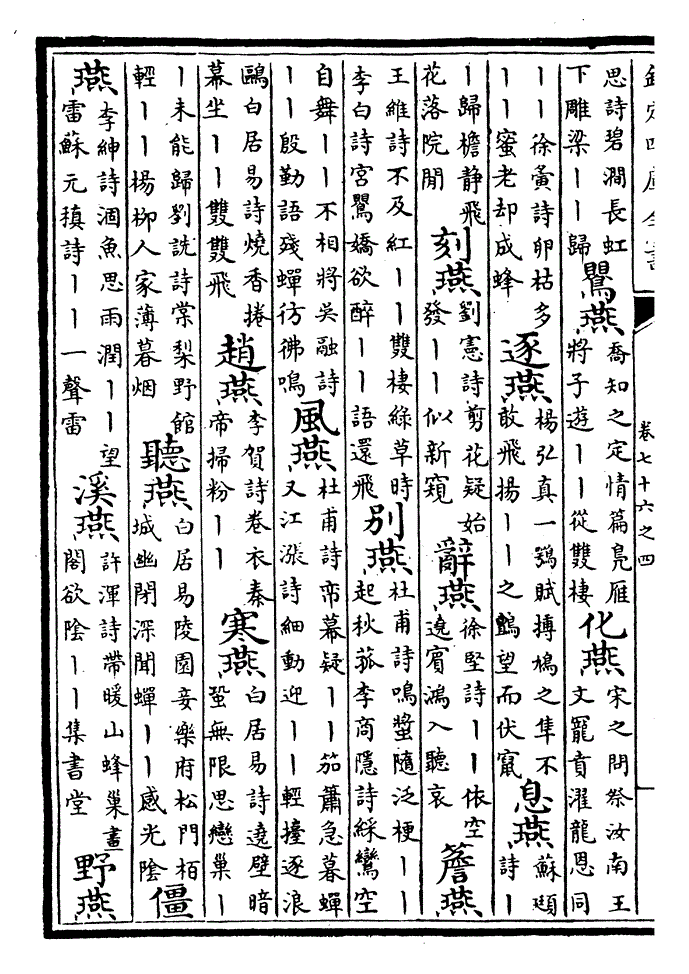 欽定四庫全書
卷七十六之四
思詩碧澗長虹
下雕梁丨丨歸
鷪燕
喬知之定情篇鳬雁
將子遊丨丨從雙棲
化燕
宋之問祭汝南王
文寵賁濯龍恩同
丨丨徐夤詩卵枯多
丨丨蜜老却成蜂
逐燕
楊弘真一鶚賦搏鳩之隼不
敢飛揚丨丨之鸇望而伏竄
息燕
蘇頲
詩丨
丨歸檐静飛
花落院閒
刻燕
劉憲詩剪花疑始
發丨丨似新窺
辭燕
徐堅詩丨丨依空
邊賓鴻入聽哀
簷燕
王維詩不及紅丨丨雙棲綠草時
李白詩宮鷪嬌欲醉丨丨語還飛
别燕
杜甫詩鳴螿隨泛梗丨丨
起秋菰李商隱詩綵鸞空
自舞丨丨不相將吳融詩
丨丨殷勤語殘蟬彷彿鳴
風燕
杜甫詩帟幕疑丨丨笳簫急暮蟬
又江漲詩細動迎丨丨輕摇逐浪
鷗白居易詩燒香捲
幕坐丨丨雙雙飛
趙燕
李賀詩卷衣秦
帝掃粉丨丨
寒燕
白居易詩遶壁暗
蛩無限思戀巢丨
丨未能歸劉説詩棠梨野館
輕丨丨楊柳人家薄暮烟
聽燕
白居易陵園妾樂府松門栢
城幽閉深聞蟬丨丨感光陰
僵
燕
李紳詩涸魚思雨潤丨丨望
雷蘇元稹詩丨丨一聲雷
溪燕
許渾詩帶暖山蜂巢畫
閣欲陰丨丨集書堂
野燕